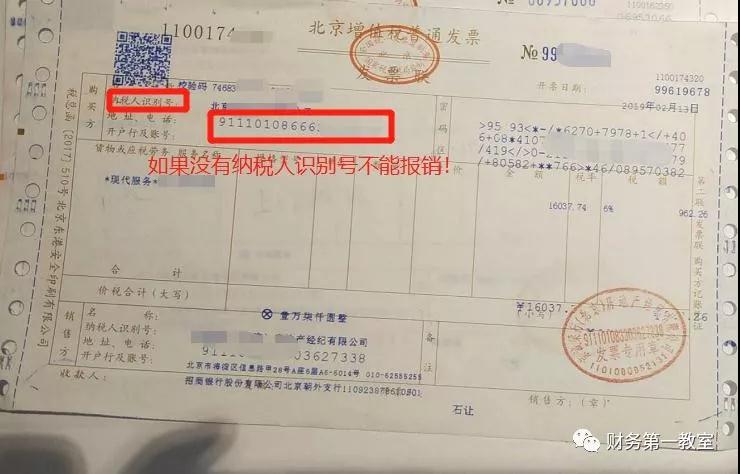 1100174
北京增值税普通发票
发票联
№99
1100174320
99619678
校验码 74683
开票日期:
2019年02月13日
购买方
纳税人识别号:
91110108666
地址、电话:
开户行及账号:
密码区
>95 93<*-/*6270+7978+1</+40
6+08*4107
/419</>0-
+80582+**766>*46/089570382
货物或应税劳务、服务名称
金额
税率
税额
如果没有纳税人识别号不能报销!
*现代服务*
16037.74
6%
962.26
合计
¥16037.
价税合计(大写)
⊗壹万柒仟圆整
(小写)
销售方
名称:
产经纪有限公司
纳税人识别号:
9111
03627338
地址、电话:
北京市海淀区信息路甲28号A座6层A6-6014号 010-62555255
开户行及账号:
招商银行股份有限公司北京朝外支行
备注
收款人:
石让
销售方:(章)
发票专用章
税总函(2017)510号北京东港安全印刷有限公司
第二联:发票联 购买方记账凭证
财务第一教室